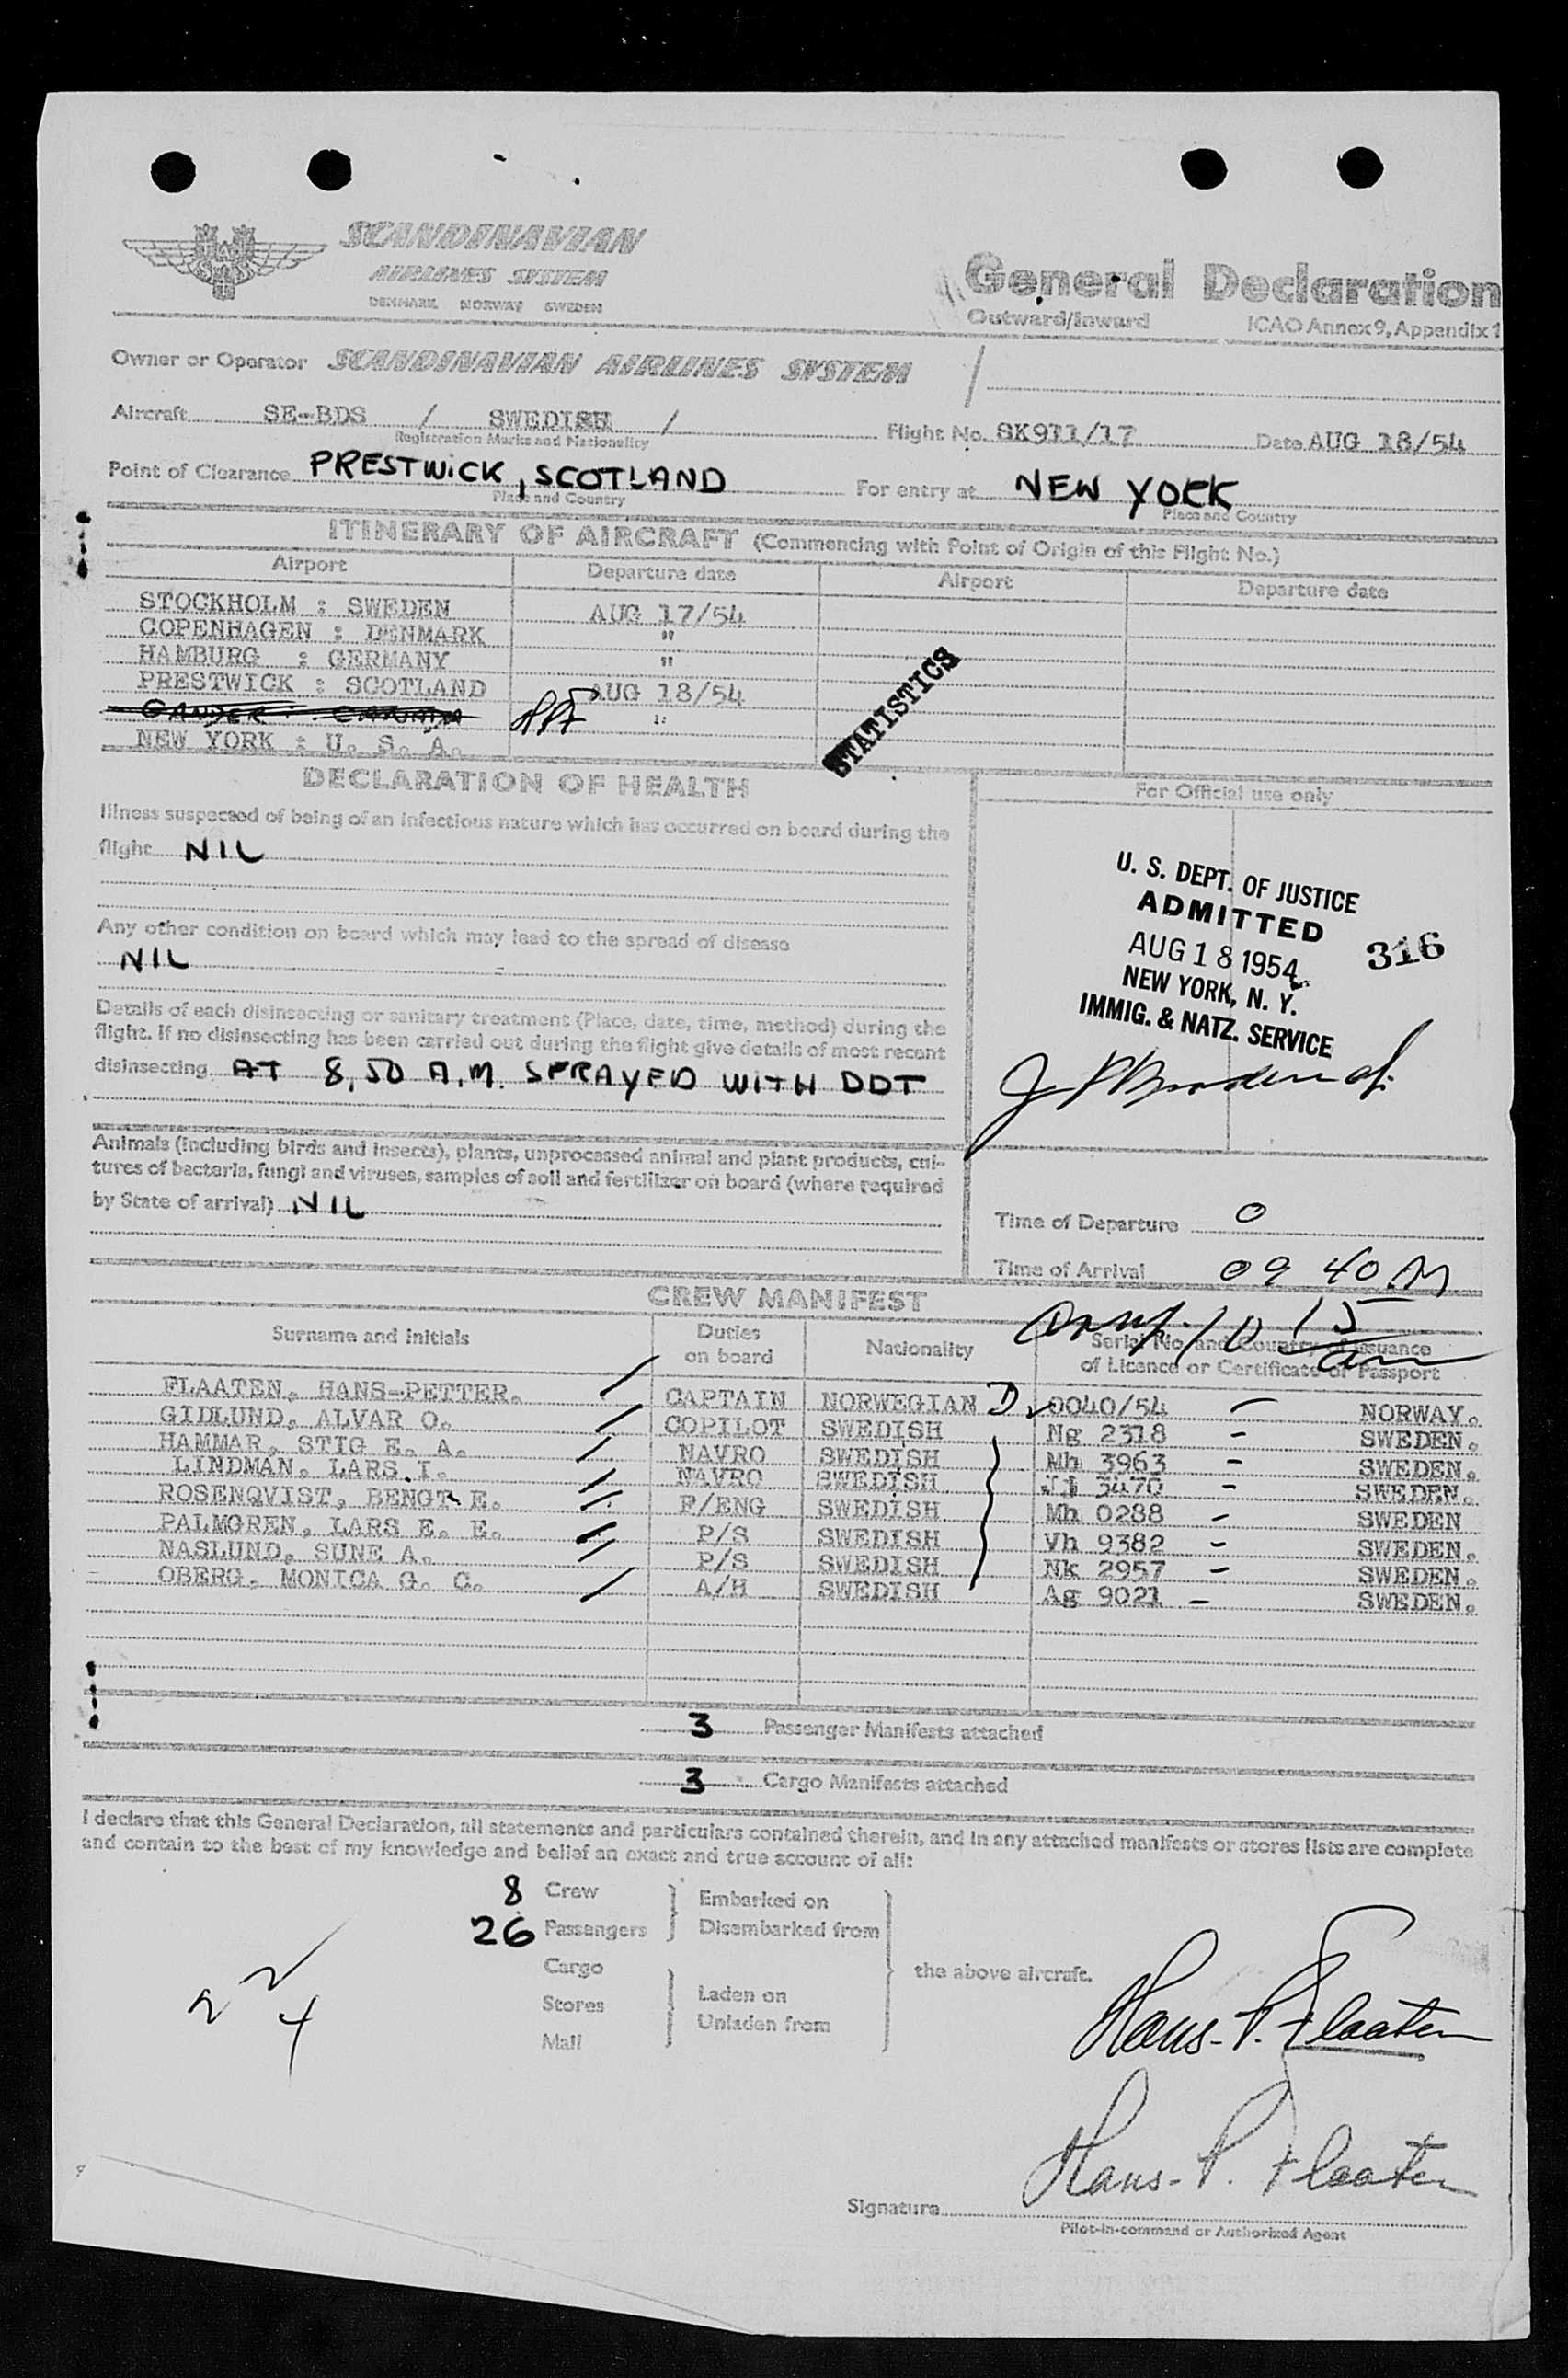 SCANDINAVIAN
AIRLINES SYSTEM
DENMARK NORWAY SWEDEN
General Declaration
Outward/Inward ICAO Annex 9, Appendix 1
Owner or Operator SCANDINAVIAN AIRLINES SYSTEM /
Aircraft SE-BDS / SWEDISH / Flight No. SK911/17 Date AUG 18/54
Registration Marks and Nationality
Point of Clearance PRESTWICK, SCOTLAND For entry at NEW YORK
Place and Country Place and Country
ITINERARY OF AIRCRAFT (Commencing with Point of Origin of this Flight No.)
Airport Departure date Airport Departure date
STOCKHOLM : SWEDEN AUG 17/54
COPENHAGEN : DENMARK "
HAMBURG : GERMANY "
PRESTWICK : SCOTLAND AUG 18/54
GANDER : CANADA "
NEW YORK : U. S. A.
STATISTICS
DECLARATION OF HEALTH
Illness suspected of being of an infectious nature which has occurred on board during the
flight NIL
Any other condition on board which may lead to the spread of disease
NIL
Details of each disinsecting or sanitary treatment (Place, date, time, method) during the
flight. If no disinsecting has been carried out during the flight give details of most recent
disinsecting AT 8,50 A.M. SPRAYED WITH DDT
Animals (including birds and insects), plants, unprocessed animal and plant products, cul-
tures of bacteria, fungi and viruses, samples of soil and fertilizer on board (where required
by State of arrival) NIL
For Official use only
U. S. DEPT. OF JUSTICE
ADMITTED
AUG 18 1954 316
NEW YORK, N. Y.
IMMIG. & NATZ. SERVICE
Time of Departure 0
Time of Arrival 09 40 AM
10 15
am
CREW MANIFEST
Surname and initials Duties on board Nationality Serial No. and Country of Issuance of Licence or Certificate or Passport
FLAATEN, HANS-PETTER. CAPTAIN NORWEGIAN D. 0040/54 - NORWAY.
GIDLUND, ALVAR O. COPILOT SWEDISH Ng 2318 - SWEDEN.
HAMMAR, STIG E. A. NAVRO SWEDISH Mh 3963 - SWEDEN.
LINDMAN. LARS.I. NAVRO SWEDISH 3470 - SWEDEN.
ROSENQVIST, BENGT E. F/ENG SWEDISH Mh 0288 - SWEDEN
PALMGREN, LARS E. E. P/S SWEDISH Vh 9382 - SWEDEN.
NASLUND, SUNE A. P/S SWEDISH Nk 2957 - SWEDEN.
OBERG, MONICA G. C. A/H SWEDISH Ag 9021 - SWEDEN.
3 Passenger Manifests attached
3 Cargo Manifests attached
I declare that this General Declaration, all statements and particulars contained therein, and in any attached manifests or stores lists are complete
and contain to the best of my knowledge and belief an exact and true account of all:
8 Crew
26 Passengers
Cargo
Stores
Mail
Embarked on
Disembarked from
Laden on
Unladen from
the above aircraft.
2 2
4
Hans-P. Flaaten
Hans-P. Flaaten
Signature
Pilot-in-command or Authorized Agent